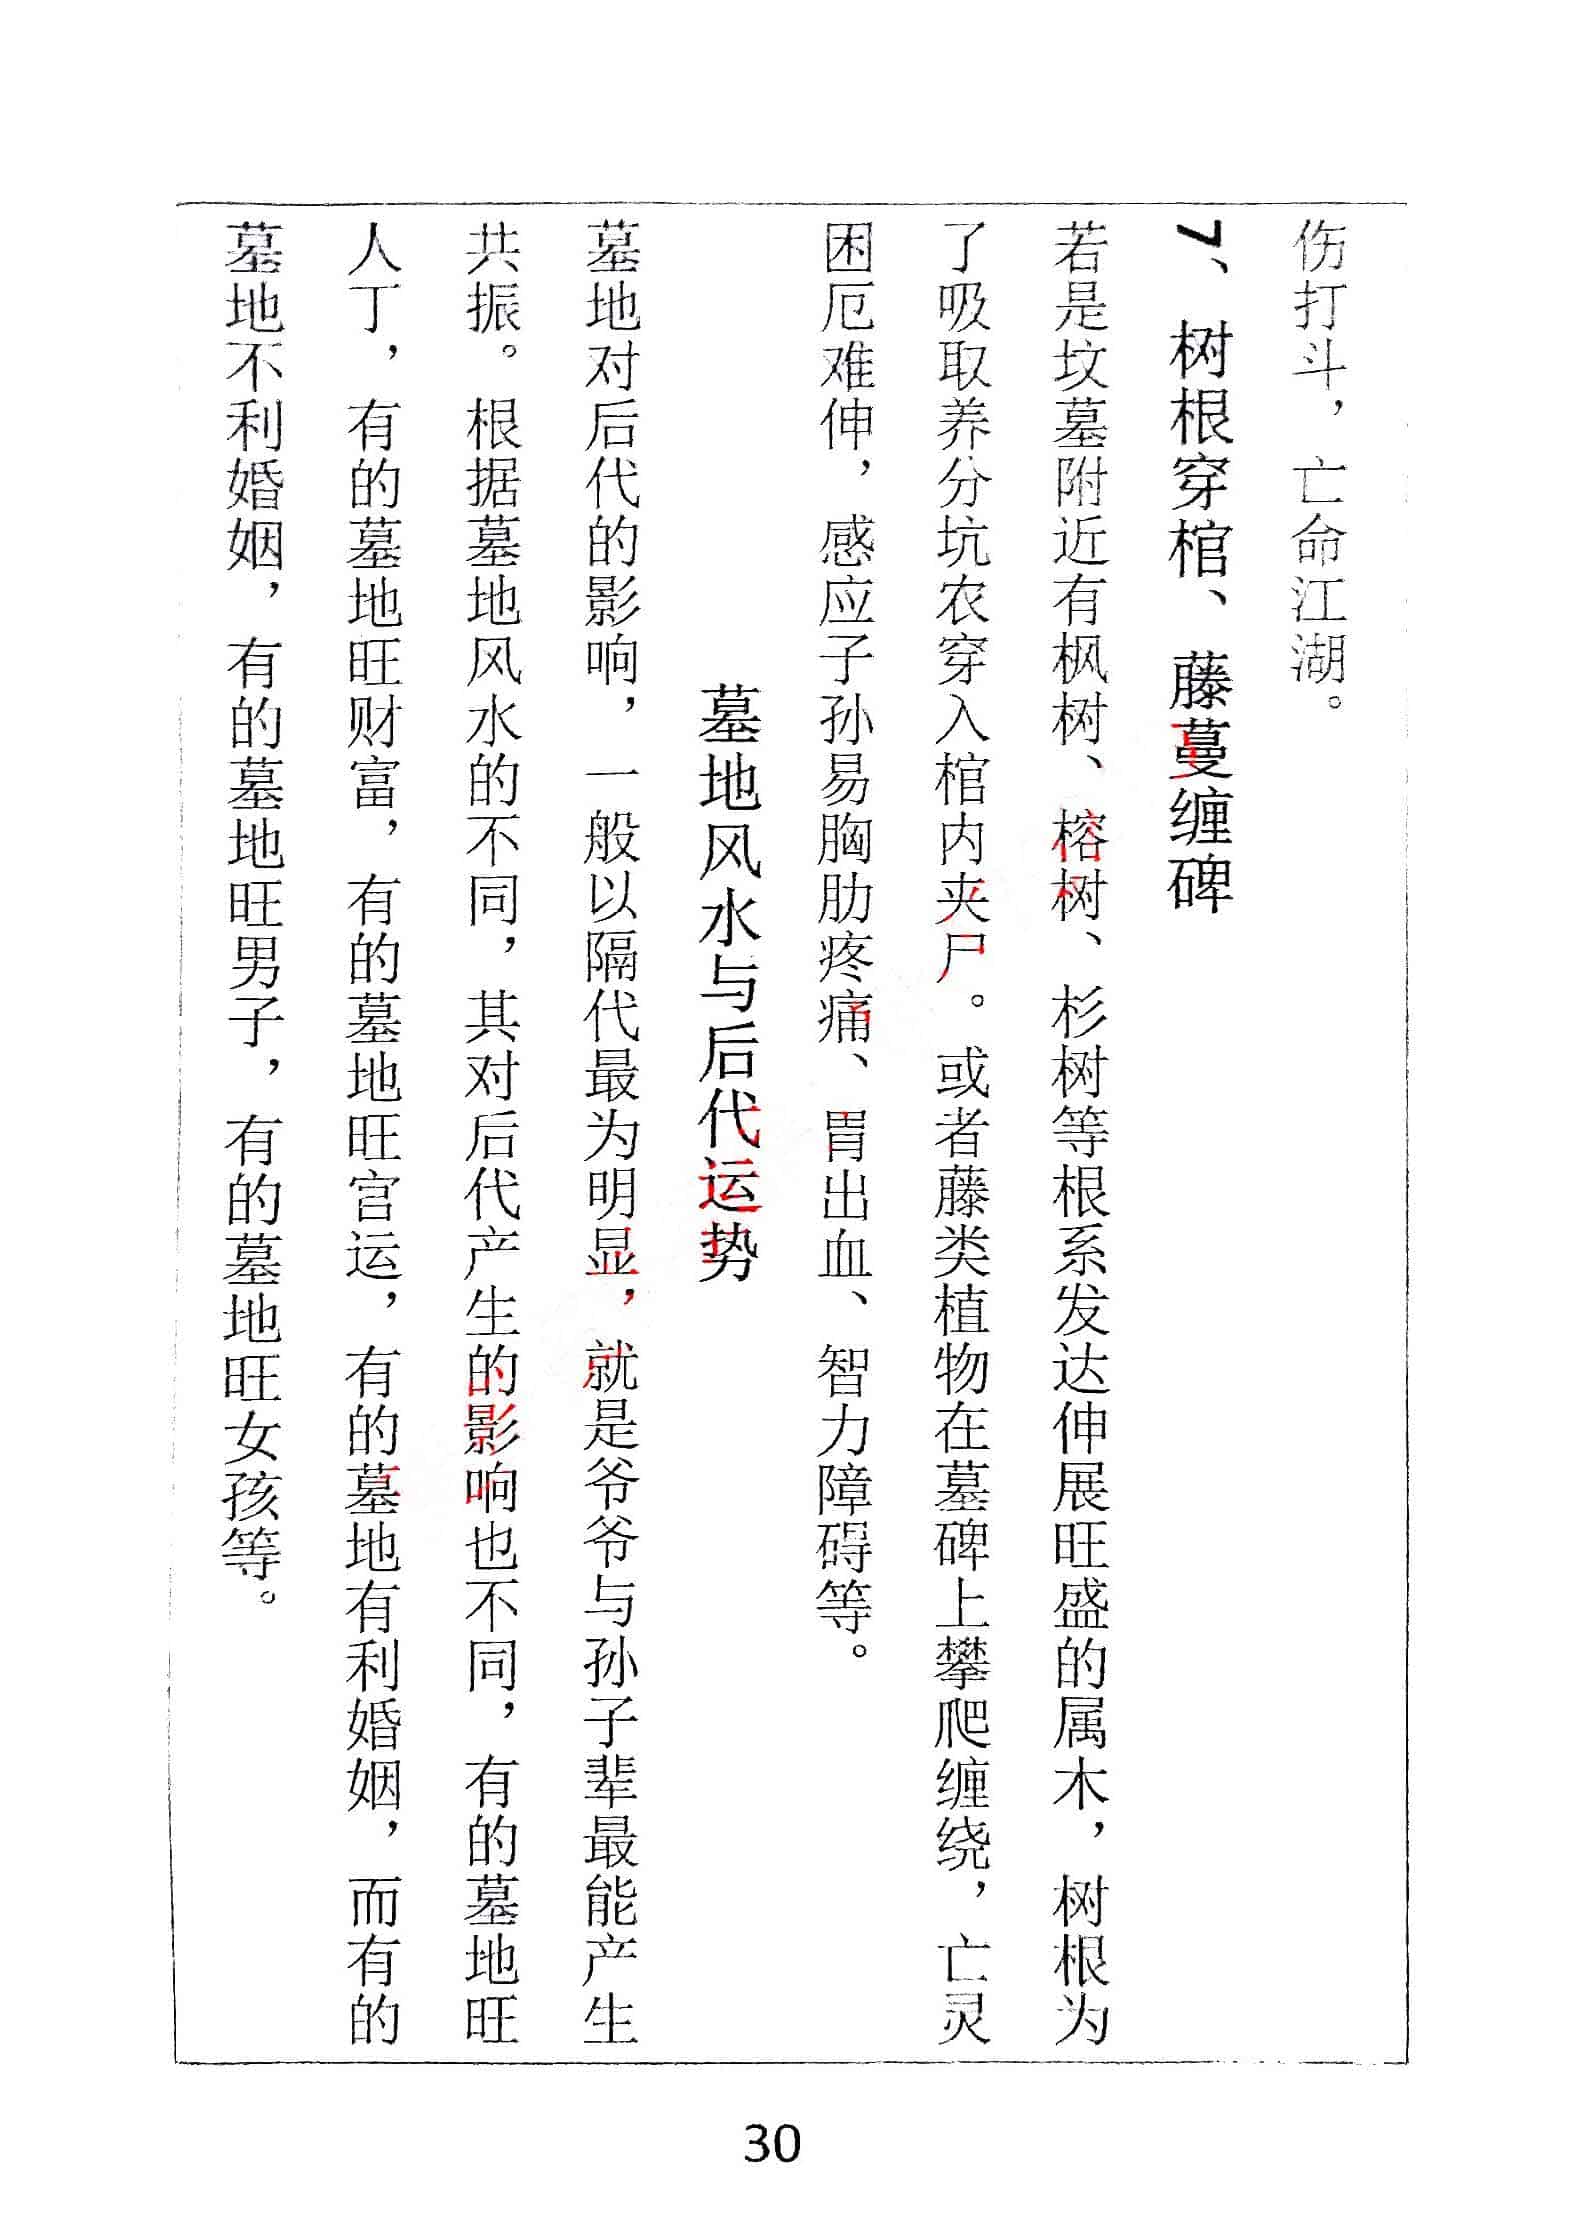 伤打斗，亡命江湖。
7、树根穿棺、藤蔓缠碑
若是坟墓附近有枫树、榕树、杉树等根系发达伸展旺盛的属木，树根为
了吸取养分坑农穿入棺内夹尸。或者藤类植物在墓碑上攀爬缠绕，亡灵
困厄难伸，感应子孙易胸肋疼痛、胃出血、智力障碍等。
墓地风水与后代运势
墓地对后代的影响，一般以隔代最为明显，就是爷爷与孙子辈最能产生
共振。根据墓地风水的不同，其对后代产生的影响也不同，有的墓地旺
人丁，有的墓地旺财富，有的墓地旺官运，有的墓地有利婚姻，而有的
墓地不利婚姻，有的墓地旺男子，有的墓地旺女孩等。
30